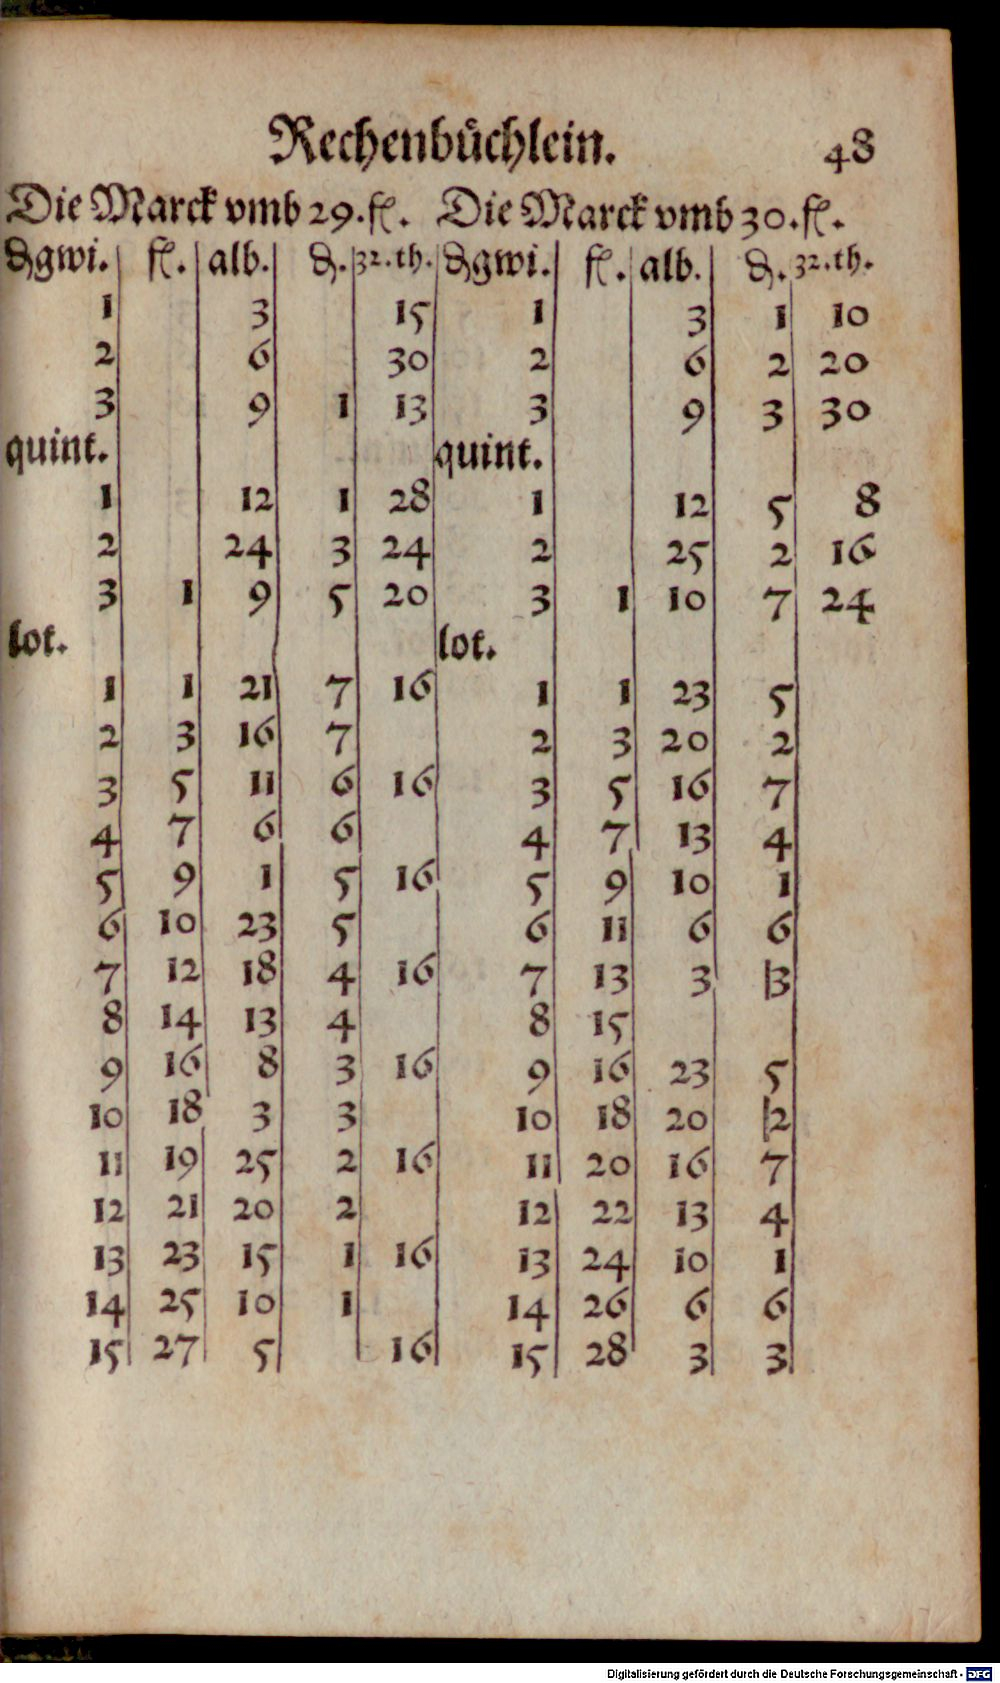 Rechenbüchlein. 48
Die Marck vmb 29. fl. Die Marck vmb 30. fl.
₰gwi. fl. alb. ₰. 32.th. ₰gwi. fl. alb. ₰. 32.th.
1 3 15 1 3 1 10
2 6 30 2 6 2 20
3 9 1 13 3 9 3 30
quint. quint.
1 12 1 28 1 12 5 8
2 24 3 24 2 25 2 16
3 1 9 5 20 3 1 10 7 24
lot. lot.
1 1 21 7 16 1 1 23 5
2 3 16 7 2 3 20 2
3 5 11 6 16 3 5 16 7
4 7 6 6 4 7 13 4
5 9 1 5 16 5 9 10 1
6 10 23 5 6 11 6 6
7 12 18 4 16 7 13 3 3
8 14 13 4 8 15
9 16 8 3 16 9 16 23 5
10 18 3 3 10 18 20 2
11 19 25 2 16 11 20 16 7
12 21 20 2 12 22 13 4
13 23 15 1 16 13 24 10 1
14 25 10 1 14 26 6 6
15 27 5 16 15 28 3 3
Digitalisierung gefördert durch die Deutsche Forschungsgemeinschaft - DFG